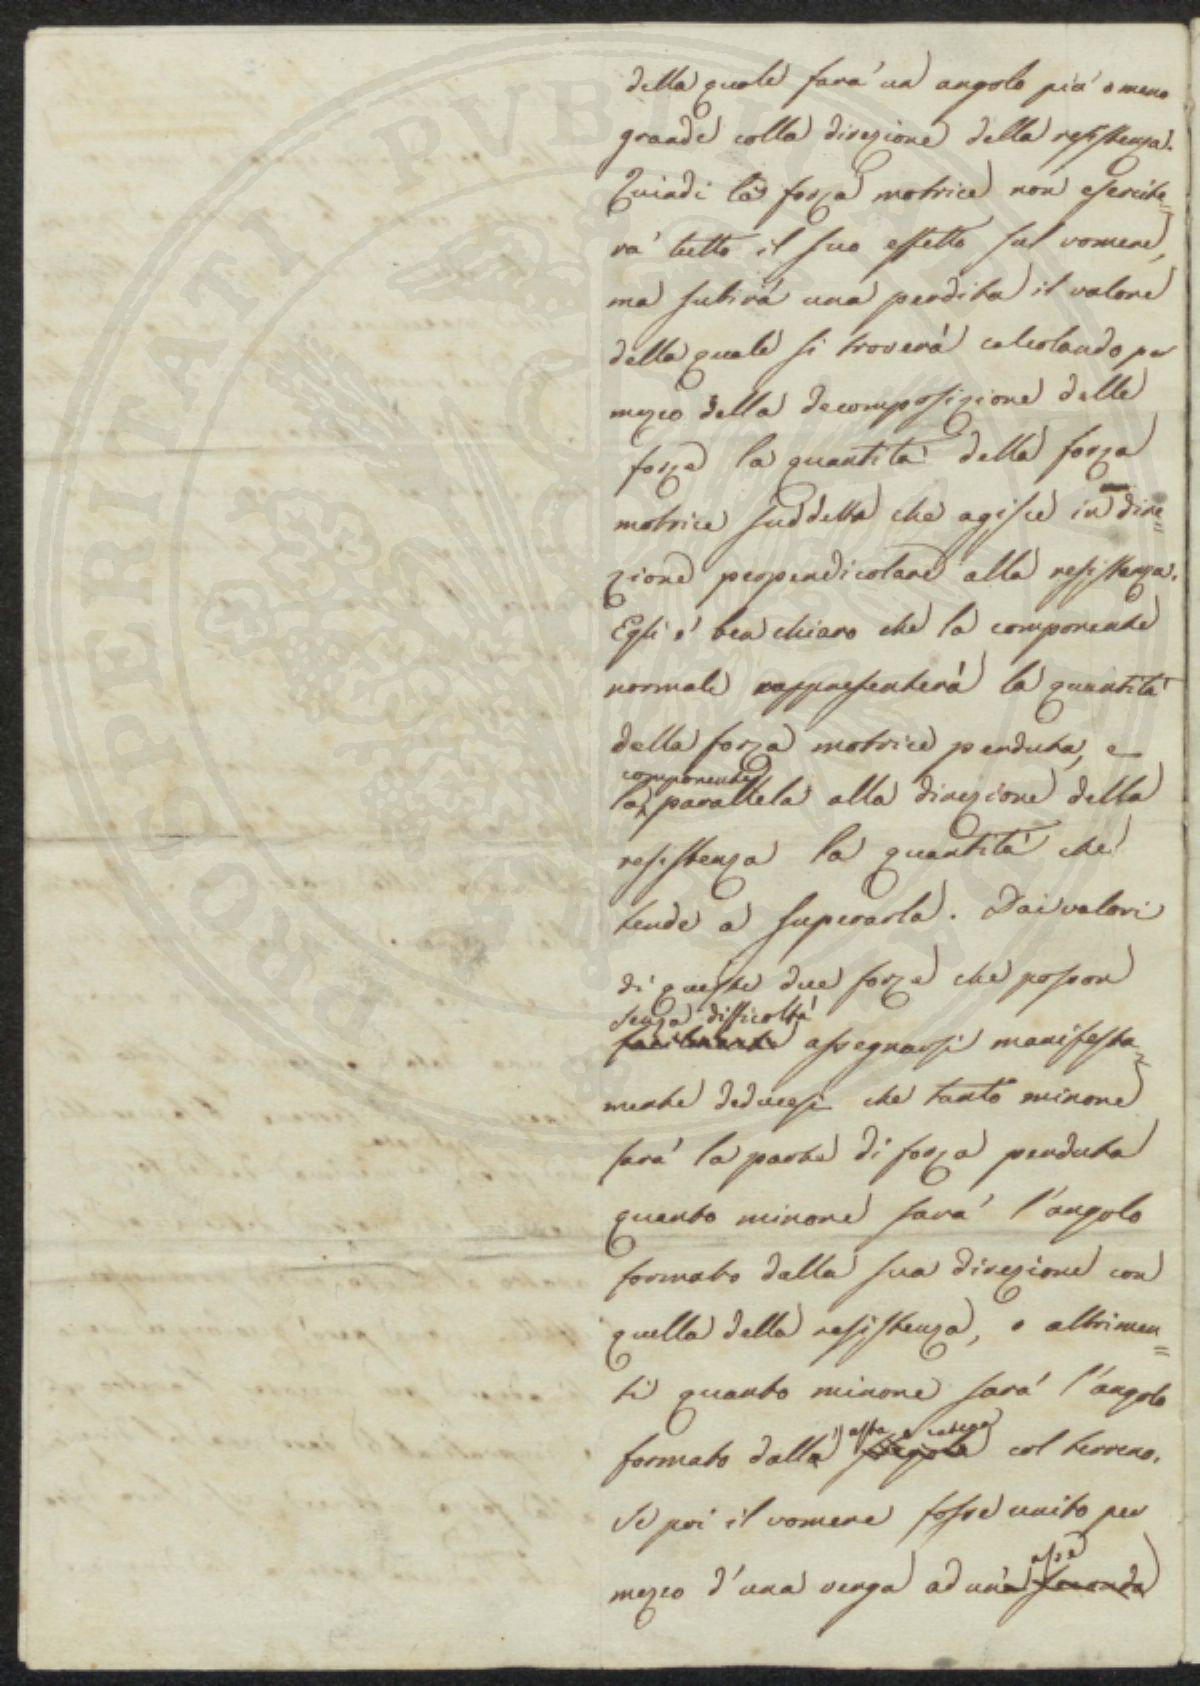 della quale farà un angolo più o meno
grande colla direzione della resistenza.
Quindi la forza motrice non esercite=
rà tutto il suo effetto sul vomere,
ma subirà una perdita il valore
della quale si troverà calcolando per
mezzo della decomposizione delle
forze la quantità della forza
motrice suddetta che agisce in dire=
zione perpendicolare alla resistenza.
Egli è ben chiaro che la componente
normale rappresenterà la quantità
della forza motrice perduta, e
componente
la parallela alla direzione della
resistenza la quantità che
tende a superarla. Dai valori
di queste due forze che posson
senza difficoltà
facilmente assegnarsi manifesta=
mente deducesi che tanto minore
sarà la parte di forza perduta
quanto minore sarà l'angolo
formato dalla sua direzione con
quella della resistenza, o altrimen=
ti quanto minore sarà l'angolo
asta o catega
formato dalla col terreno.
Se poi il vomere fosse unito per
asse
mezzo d'una verga ad una seconda
PROSPERITATI PVBLICAE